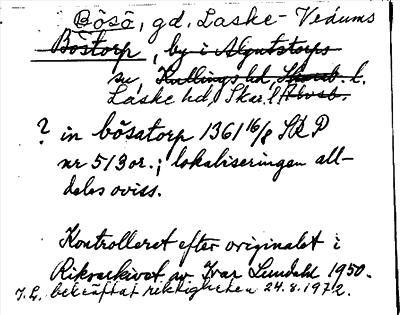 Bösö, gd. Laske-Vedums
Böstorp, by i Algutstorps
sn, Kullings hd, Skarab. l.
Laske hd, Skar. l. Älvsb.
? in bösatorp 1361 16/8 SRP
nr 513 or.; lokaliseringen all-
deles oviss.
Kontrolleret efter originalet i
Riksarkivet av Ivar Lundahl 1950.
I. L. bekräftat riktigheten 24.8.1972.